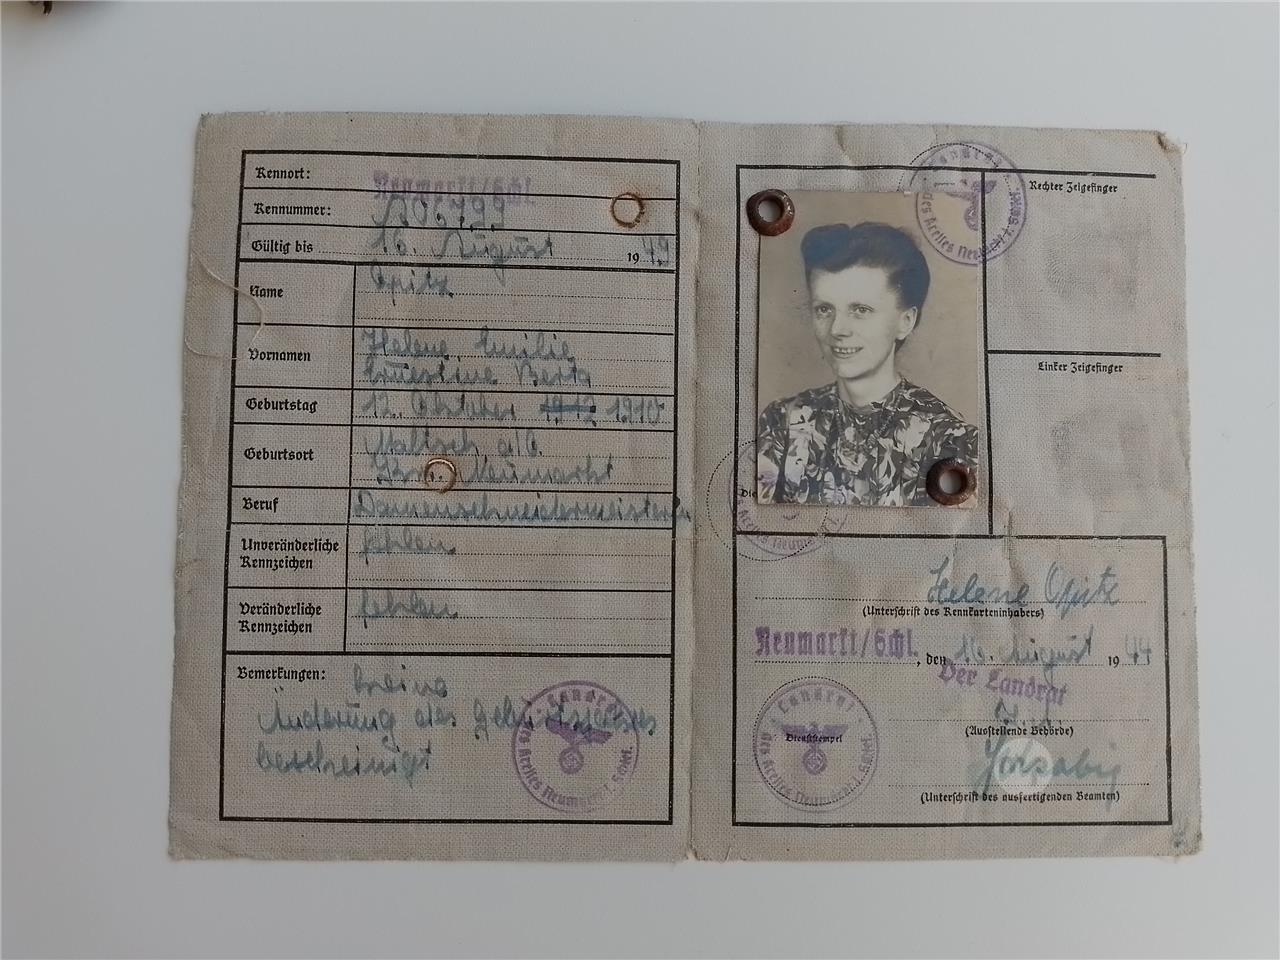 Kennort: Neumarkt/Schl.
Kennummer:
Gültig bis 16. August 1949
Name Opitz
Vornamen Helene Emilie
Ernestine Berta
Geburtstag 12. Oktober 1912 1910
Geburtsort Maltsch a/O.
Krs. Neumarkt
Beruf Damenschneidermeisterin
Unveränderliche Kennzeichen fehlen
Veränderliche Kennzeichen fehlen
Bemerkungen: keine
Änderung des Geburtsjahres
bescheinigt
Landrat
des Kreises Neumarkt i. Schles.
Landrat
des Kreises Neumarkt i. Schles.
Rechter Zeigefinger
Linker Zeigefinger
Die
des Kreises Neumarkt i.
Helene Opitz
(Unterschrift des Kennkarteninhabers)
Neumarkt/Schl., den 16. August 1944
Der Landrat
(Ausstellende Behörde)
Landrat
Dienststempel
des Kreises Neumarkt i. Schles.
(Unterschrift des ausfertigenden Beamten)